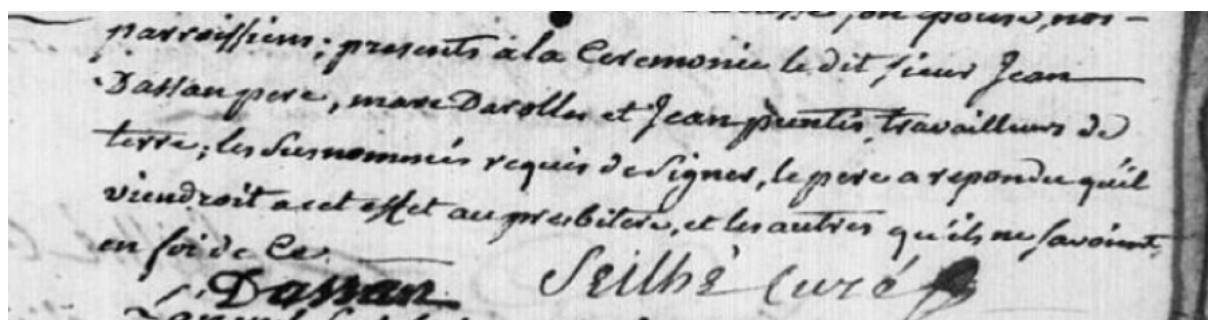 son epouse, nos-
parroissiens; presents a la Ceremonie le dit sieur Jean
Dassan pere, marc Darolles et Jean puntis travailleurs de
terre; les susnommés requis de signer, le pere a repondu qu'il
viendroit a cet effet au presbitere, et les autres qu'ils ne savoient,
en foi de Ce.
Dassan Seilhé curé